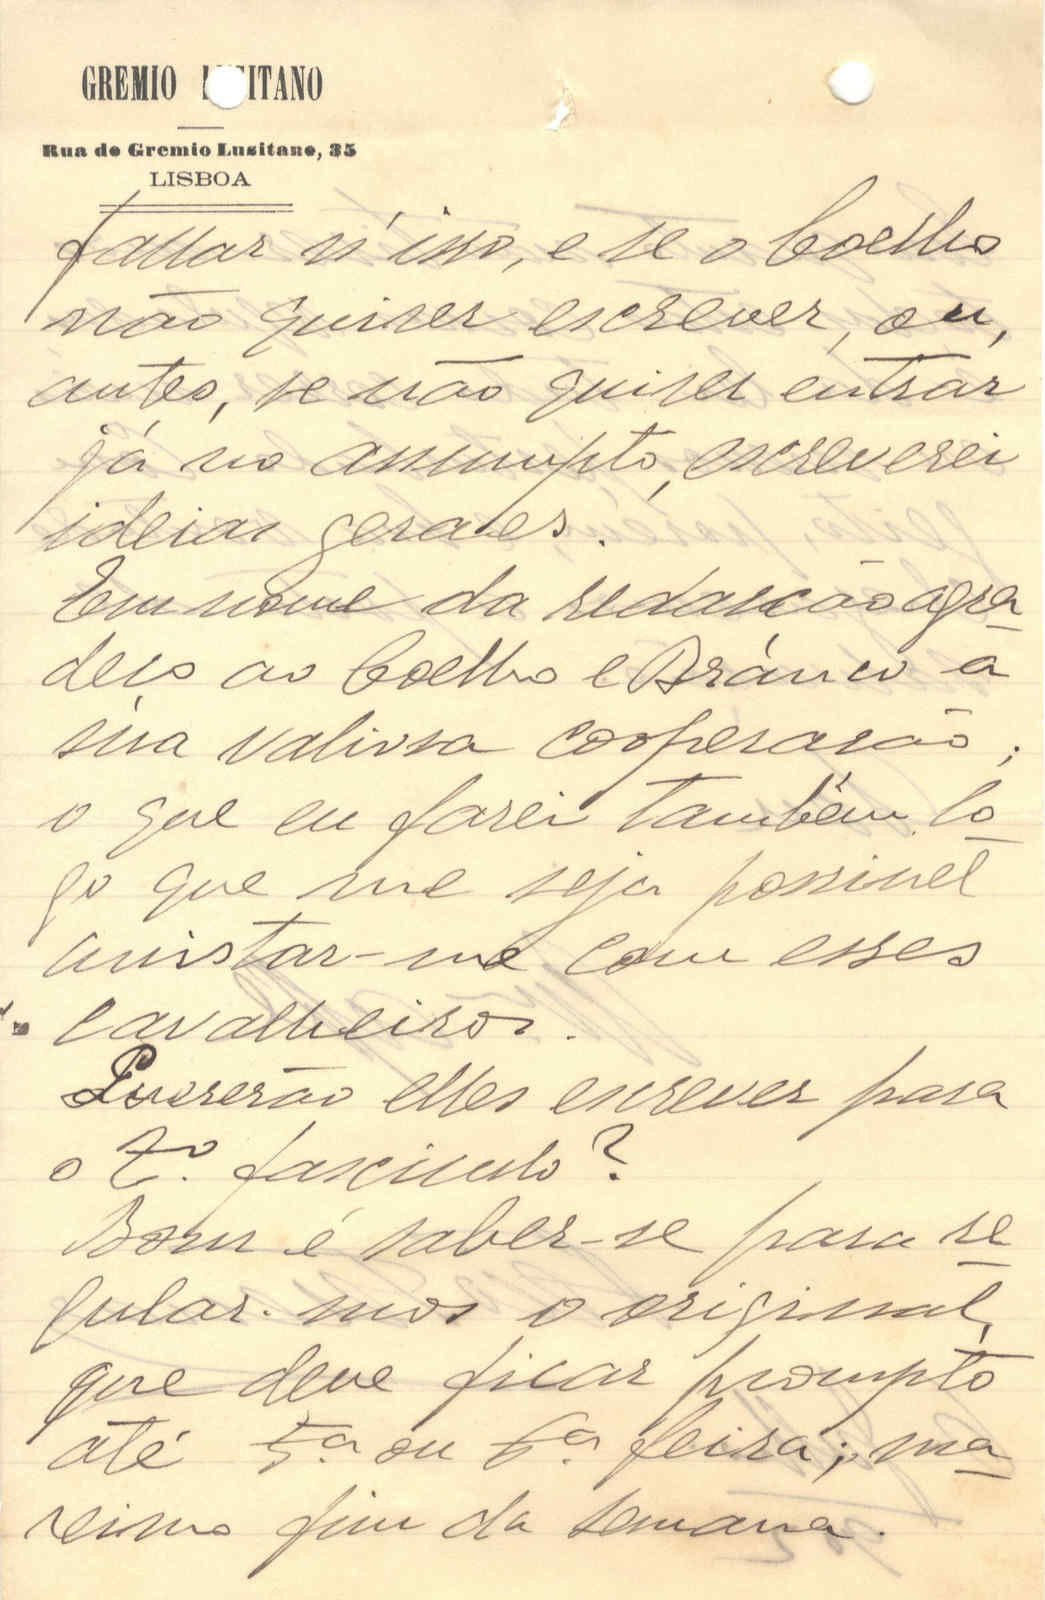 GREMIO LUSITANO
Rua do Gremio Lusitano, 35
LISBOA
fallar n'isso, e se o Coelho
não quiser escrever, ou,
antes, se não quiser entrar
já no assumpto, escreverei
ideias geraes.
Em nome da redacção agra-
deço ao Coelho e Branco a
sua valiosa cooperação;
o que eu farei tambêm lo-
go que me seja possivel
avistar-me com esses
cavalheiros.
Quererão elles escrever para
o 2º. fasciculo?
Bom é saber-se para re-
gular-mos o original,
que deve ficar prompto
até 5ª. ou 6ª. feira; ma-
ximo fim da semana.